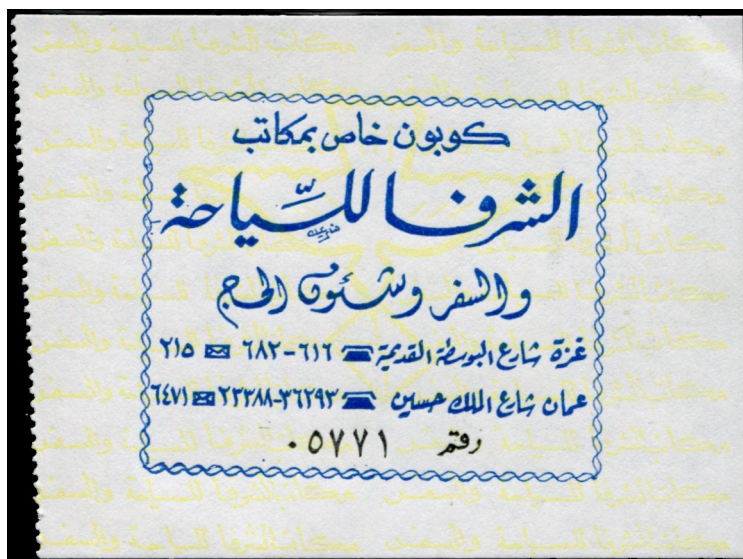 كوبون خاص بمكاتب
الشرفا للسّياحة
والسفر وشئون الحاج
غزة شارع البوسطة القديمة ☎ ٦١٦-٦٨٢ ✉ ٢١٥
عمان شارع الملك حسين ☎ ٣٦٢٩٣-٢٣٣٨٨ ✉ ٦٤٧١
رقم ٠٥٧٧١
مكاتب الشرفا للسياحة والسفر مكاتب الشرفا للسياحة والسفر